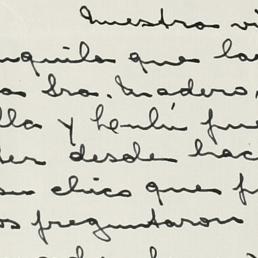 Nuestra vi
nquila que la
a Sra. Madero,
lla y Lulú fue
der desde hac
su chico que f
os preguntaron